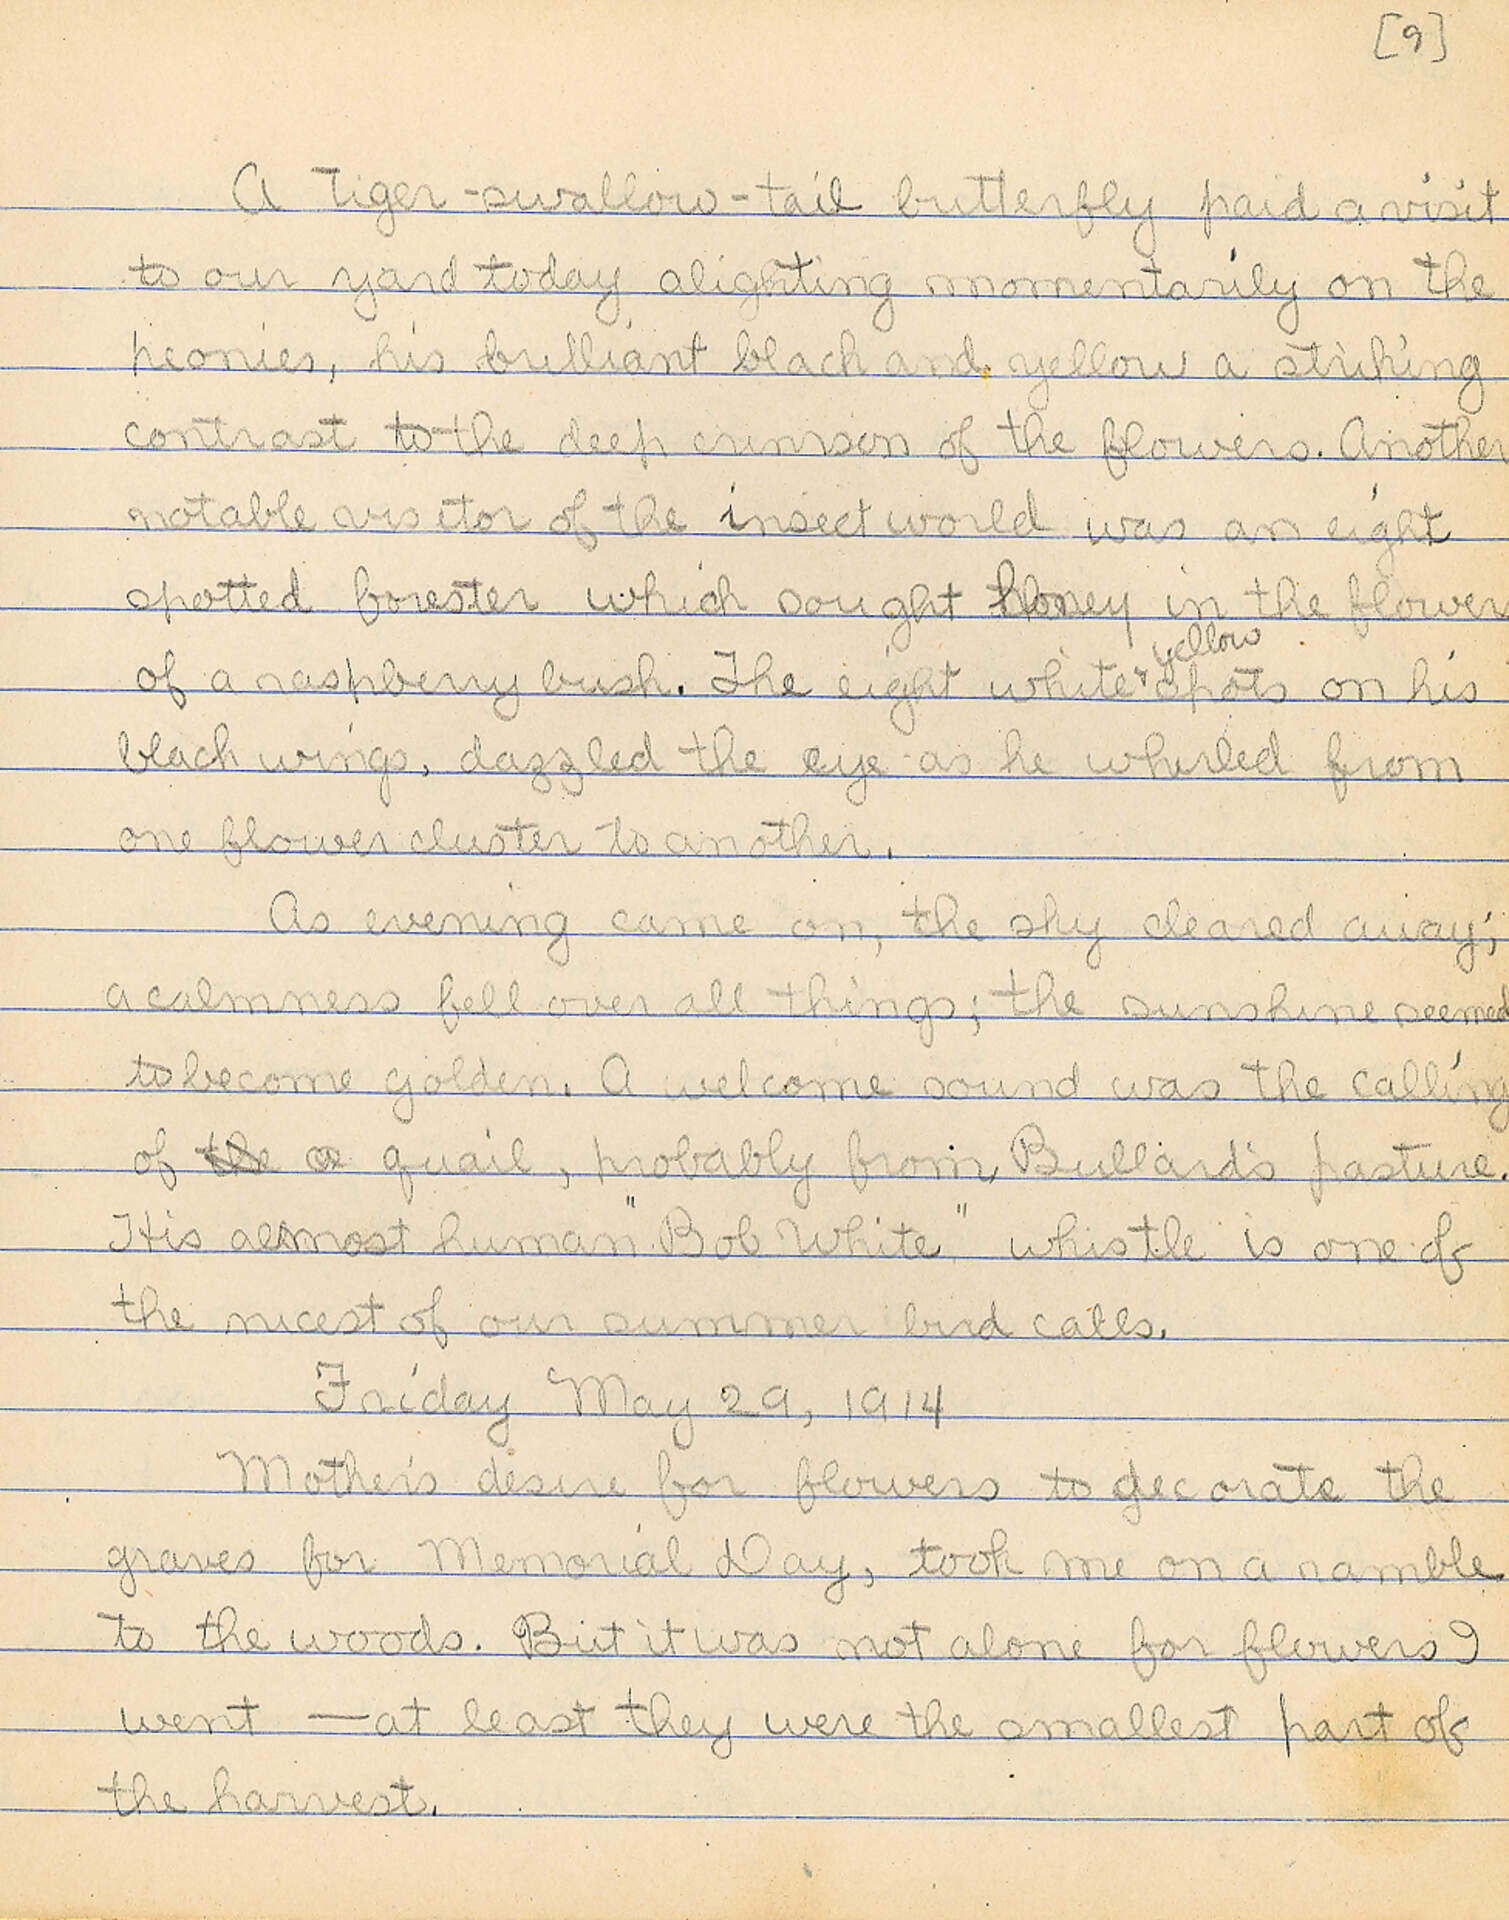 [9]
A tiger-swallow-tail butterfly paid a visit
to our yard today alighting momentarily on the
peonies, his brilliant black and yellow a striking
contrast to the deep crimson of the flowers. Another
notable visitor of the insect world was an eight
spotted forester which sought honey in the flower
of a raspberry bush. The eight white & yellow spots on his
black wings, dazzled the eye as he whirled from
one flower cluster to another.
As evening came on, the sky cleared away;
a calmness fell over all things; the sunshine seemed
to become golden. A welcome sound was the calling
of the a quail, probably from Bullard's pasture.
His almost human "Bob White" whistle is one of
the nicest of our summer bird calls.
Friday May 29, 1914
Mother's desire for flowers to decorate the
graves for Memorial Day, took me on a ramble
to the woods. But it was not alone for flowers I
went — at least they were the smallest part of
the harvest.